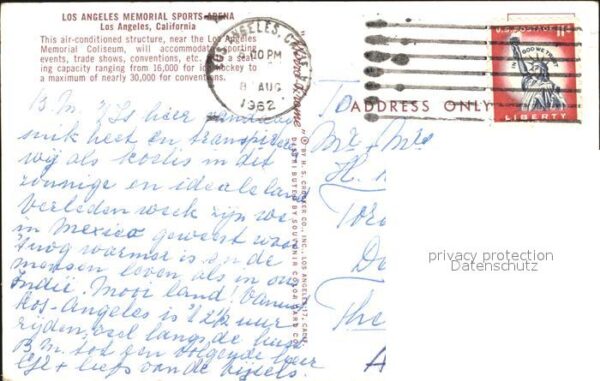 LOS ANGELES MEMORIAL SPORTS ARENA
Los Angeles, California
This air-conditioned structure, near the Los Angeles
Memorial Coliseum, will accommodate sporting
events, trade shows, conventions, etc. a seat-
ing capacity ranging from 16,000 for ice hockey to
a maximum of nearly 30,000 for conventions.
LOS ANGELES, CALIF.
PM
8 AUG
1962
U.S. POSTAGE
IN GOD WE TRUST
LIBERTY
ADDRESS ONLY
© BY H. S. CROCKER CO., INC. LOS ANGELES 17, CALIF.
DISTRIBUTED BY SOUVENIR COLOR CARD CO.
B. M. 't Is hier
heet en transpireren
wij als koelis in dit
zonnige en ideale land
Verleden week zijn we
in Mexico geweest waar
't nog warmer is en de
mensen leven als in ons
Indië. Mooi land! Vanuit
Los-Angeles is 't 2½ uur
rijden, veel langs de
B. M. tot een volgende keer
+ liefs van de
To
Mr. Mrs
H.
The
privacy protection
Datenschutz